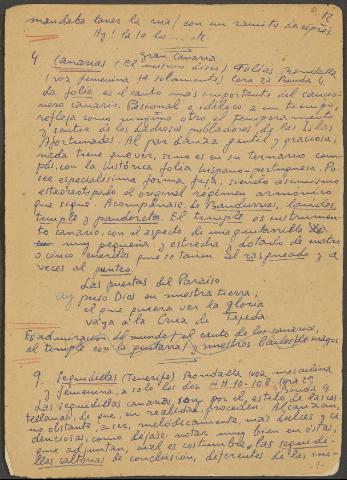 12
mandaba lavar la rua / con un ramito de cipres.
Ay! la le lo ... etc
Gran Canaria
4 Canarias (El mismo disco) Folías. Rondalla
(voz femenina 12 solamente) Cara 2ª Banda 4
La folía es el canto más importante del cancio-
nero canario. Pasional e idílico a un tiempo,
refleja como ninguno otro el temperamento
y sentir de los pobladores de las Islas
Afortunadas. Al par danza gentil y graciosa,
nada tiene que ver, si no es en su ternario com-
pás, con la histórica folía hispano-portuguesa. Po-
see especialísima forma fija, siendo asimismo
estereotipado el original régimen armónico
que sigue. Acompáñase de Bandurrias, laúdes,
timple y pandereta. El timple es instrumen-
to canario, con el aspecto de una guitarrilla
muy pequeña y estrecha y dotado de cuatro
o cinco cuerdas que se tañen al rasgueado y a
veces al punteo.
Las puertas del Paraíso
ay puso Dios en nuestra tierra;
el que quiera ver la gloria
vaya a la Cruz de Tejeda.
Es admiración del mundo / el canto de los canarios,
el timple con la guitarra / y nuestros bailes de magos
9. Seguidillas (Tenerife) Rondalla voz masculina
y femenina, a solo los dos HH 10-108 Cara 2ª
Banda 9
Las seguidillas canarias, son por el estilo de las cas-
tellanas, de que, en realidad, proceden. Alcanzan,
no obstante, a ser, melódicamente, más dulces y ca-
denciosas, como déjase notar muy bien en éstas,
que adjuntan, cual es costumbre, las segui-
llas saltonas de conclusión, diferentes de las ini-